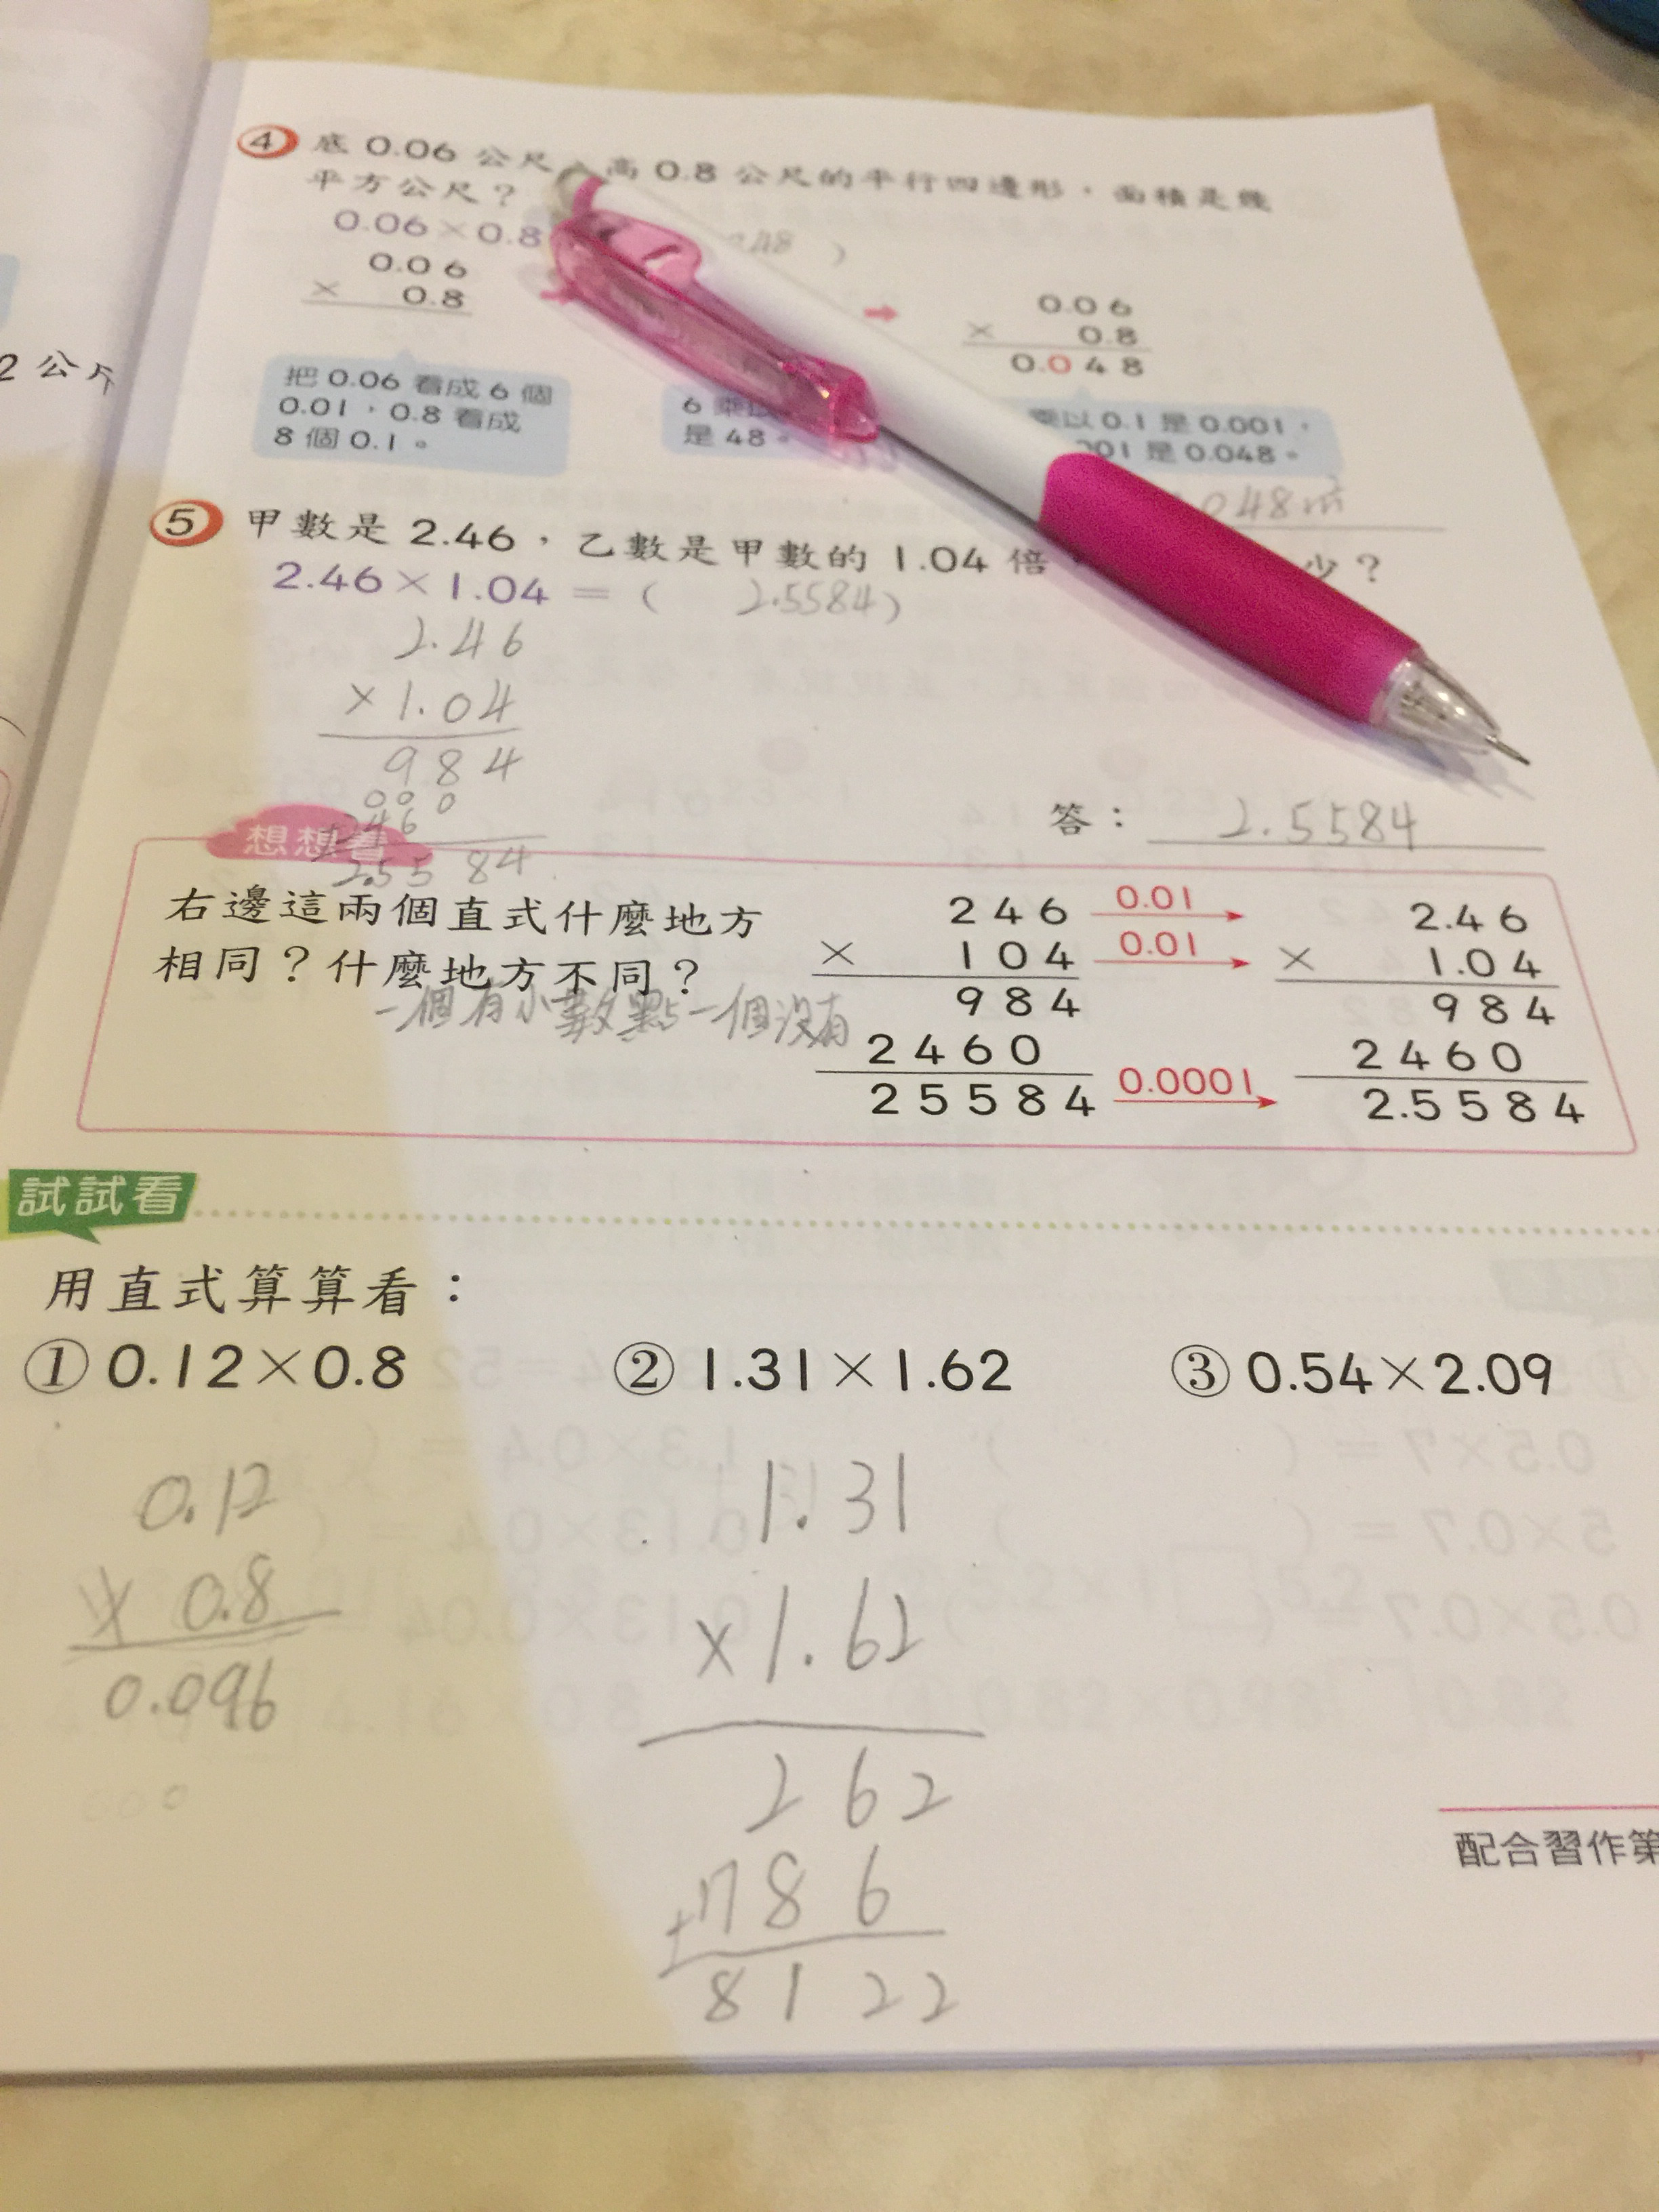 2 公斤
④ 底 0.06 公尺、高 0.8 公尺的平行四邊形，面積是幾
平方公尺？
0.06×0.8
48 )
0.06
× 0.8
→
0.06
× 0.8
0.048
把 0.06 看成 6 個
0.01，0.8 看成
8 個 0.1。
6 乘以
是 48。
乘以 0.1 是 0.001，
001 是 0.048。
048㎡
⑤ 甲數是 2.46，乙數是甲數的 1.04 倍 少？
2.46×1.04＝( 2.5584)
2.46
×1.04
984
000
246
2.5584
答： 2.5584
想想看
右邊這兩個直式什麼地方
相同？什麼地方不同？
一個有小數點一個沒有
246 0.01 2.46
× 104 0.01 × 1.04
984 984
2460 2460
25584 0.0001 2.5584
試試看
用直式算算看：
① 0.12×0.8 ② 1.31×1.62 ③ 0.54×2.09
0.12
× 0.8
0.096
000
1.31
×1.62
262
+786
8122
配合習作第